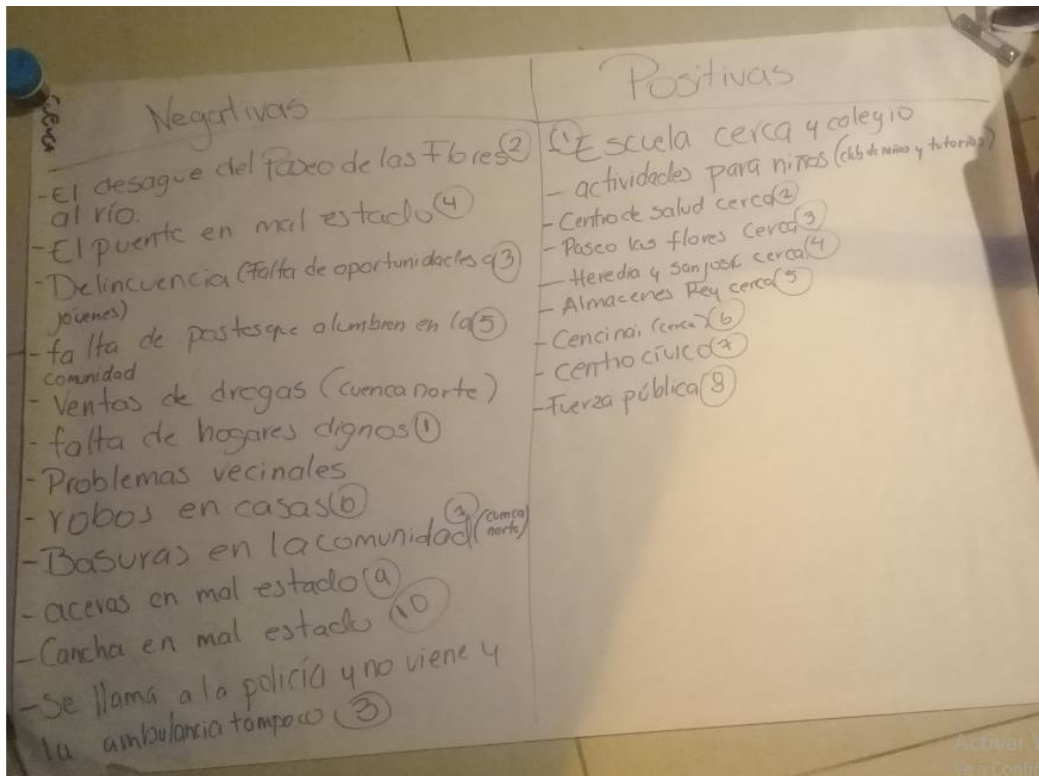 Negativas
- El desague del Paseo de las Flores ②
al río.
- El puente en mal estado ④
- Delincuencia (falta de oportunidades a ③
jóvenes)
- falta de postes que alumbren en la ⑤
comunidad
- Ventas de drogas (cuenca norte)
- falta de hogares dignos ①
- Problemas vecinales
- robos en casas ⑥
- Basuras en la comunidad (cuenca
norte)
- aceras en mal estado ⑨
- Cancha en mal estado ⑩
- Se llama a la policía y no viene y
la ambulancia tampoco ③
Positivas
① Escuela cerca y colegio
- actividades para niños (club de niños y tutorias)
- Centro de salud cerca ②
- Paseo las flores cerca ③
- Heredia y San José cerca ④
- Almacenes Rey cerca ⑤
- Cencinai (cerca) ⑥
- centro cívico ⑦
- Fuerza pública ⑧
Activar